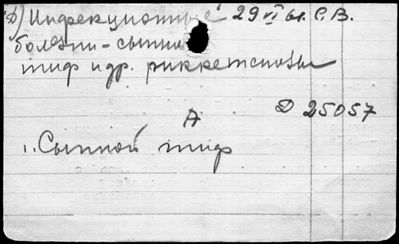 Д) Инфекционные 29 VI 61. С. В.
болезни - сыпной
тиф и др. риккетсиозы
Д 25057
А
1. Сыпной тиф